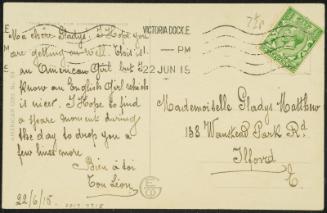 Ma chère Gladys. I Hope you
are getting on well. This is
an American Girl but I
know an English Girl who is
is nicer. I Hope to find
a spare moment during
the day to drop you a
few lines more
Bien à toi
Ton Léon
22/6/15
VICTORIA DOCK.E.
PM
22 JUN 15
Mademoiselle Gladys Matthew
138 Wanstead Park Rd.
Ilford
E.